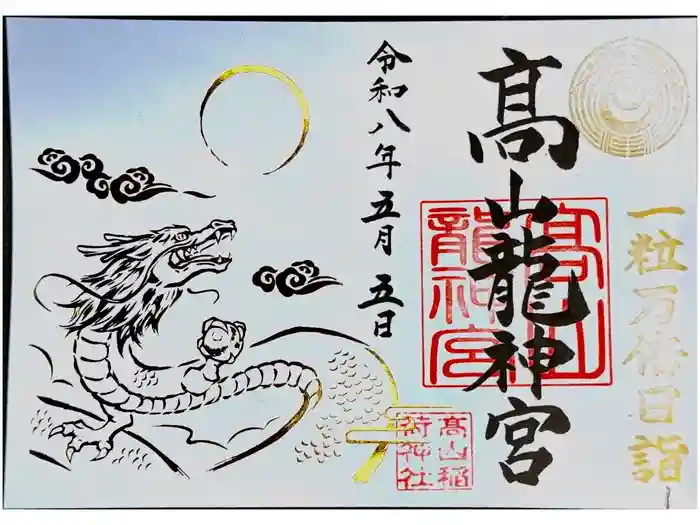 一粒万倍日詣
髙山龍神宮
髙山
龍神宮
令和八年五月五日
髙山稲
荷神社